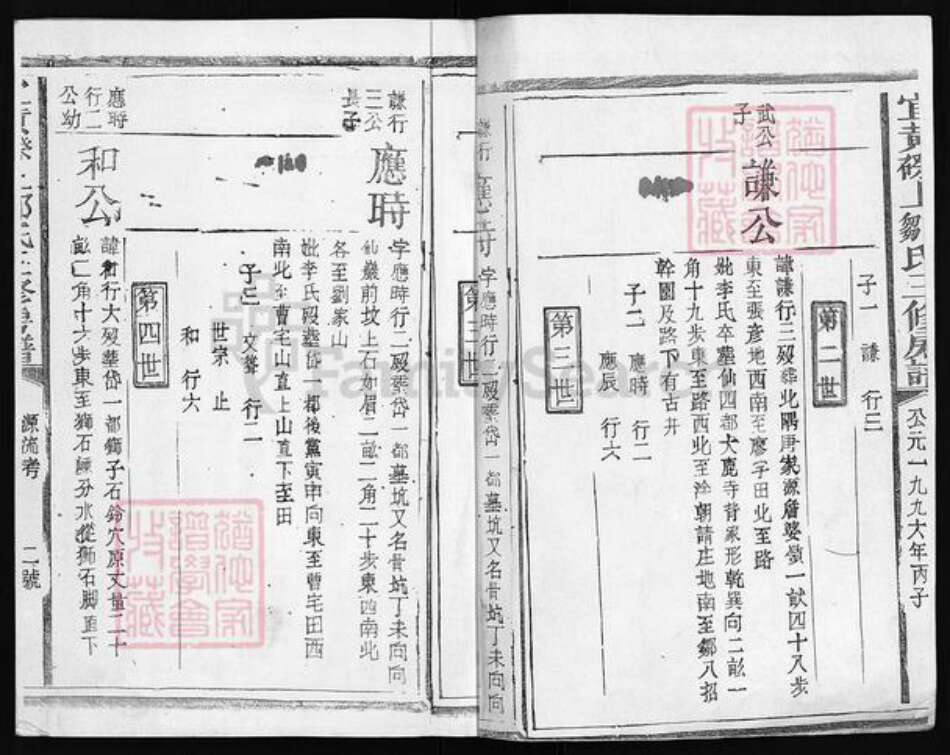 宜黄磜上鄒氏三修房譜
公元一九九六年丙子
子一 謙 行三
第二世
武公
子
謙公
諱謙行三殁葬北隅唐
源詹婆嶺一畝四十八步
東至張彥地西南至廖子田北至路
妣李氏卒塟仙四都犬鹿寺背
形乾巽向二畝一
角十九步東至路西北至
朝請庄地南至鄒八招
幹園及路下有古井
子二 應時 行二
應辰 行六
第三世
謙行
三公
長子
應時
字應時行二殁塟岱一都墓坑又名骨坑丁未向向
仙巖前坟上石如眉二畝二角二十步東西南北
各至劉家山
妣李氏殁塟岱一都後黨寅申向東至曹宅田西
南北至曹宅山直上山直下至田
子三 文聲 行二
世宗 止
和 行六
第四世
應時
行二
公幼
和公
行六殁塟岱一都獅子石
穴原丈量二十
畝二角十六步東至獅石
分水從獅石脚直下
源流考
二號